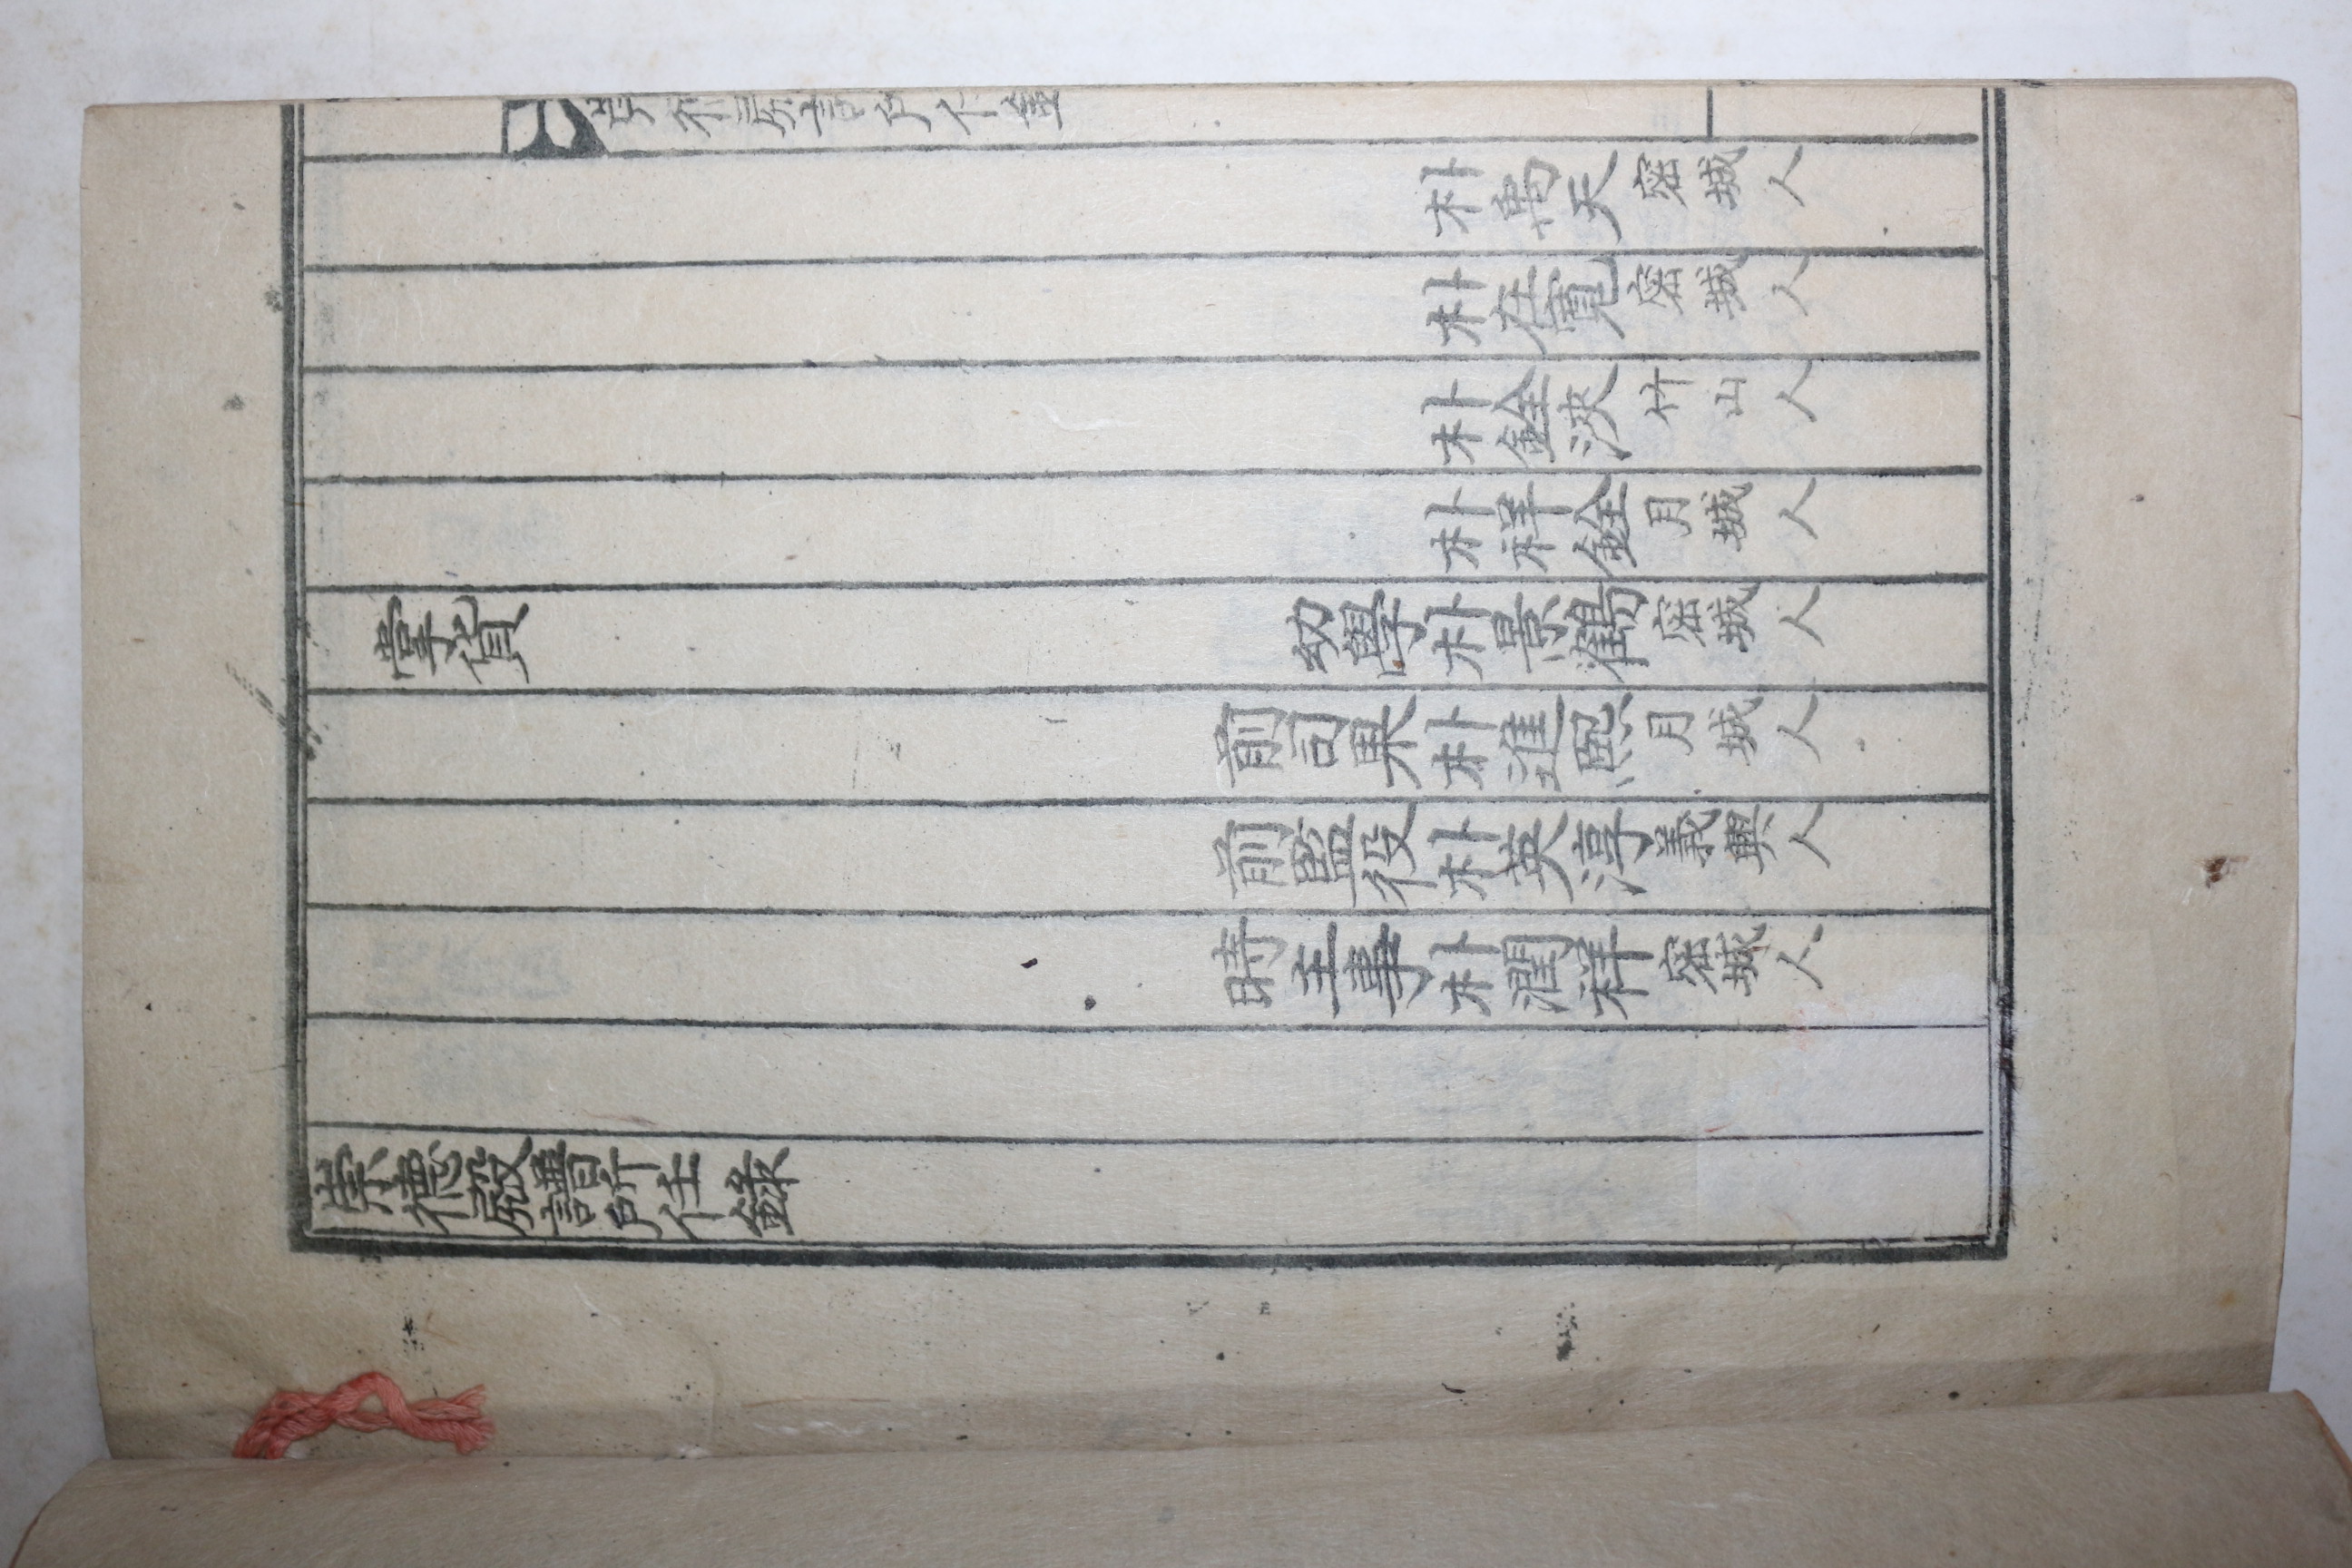 朴禹天 密城人
朴在寬 密城人
朴銓浹 竹山人
朴祥銓 月城人
掌貨 幼學朴景鶴 密城人
前司果朴進熙 月城人
前監役朴英淳 義興人
時主事朴潤祥 密城人
崇德殿譜所任錄